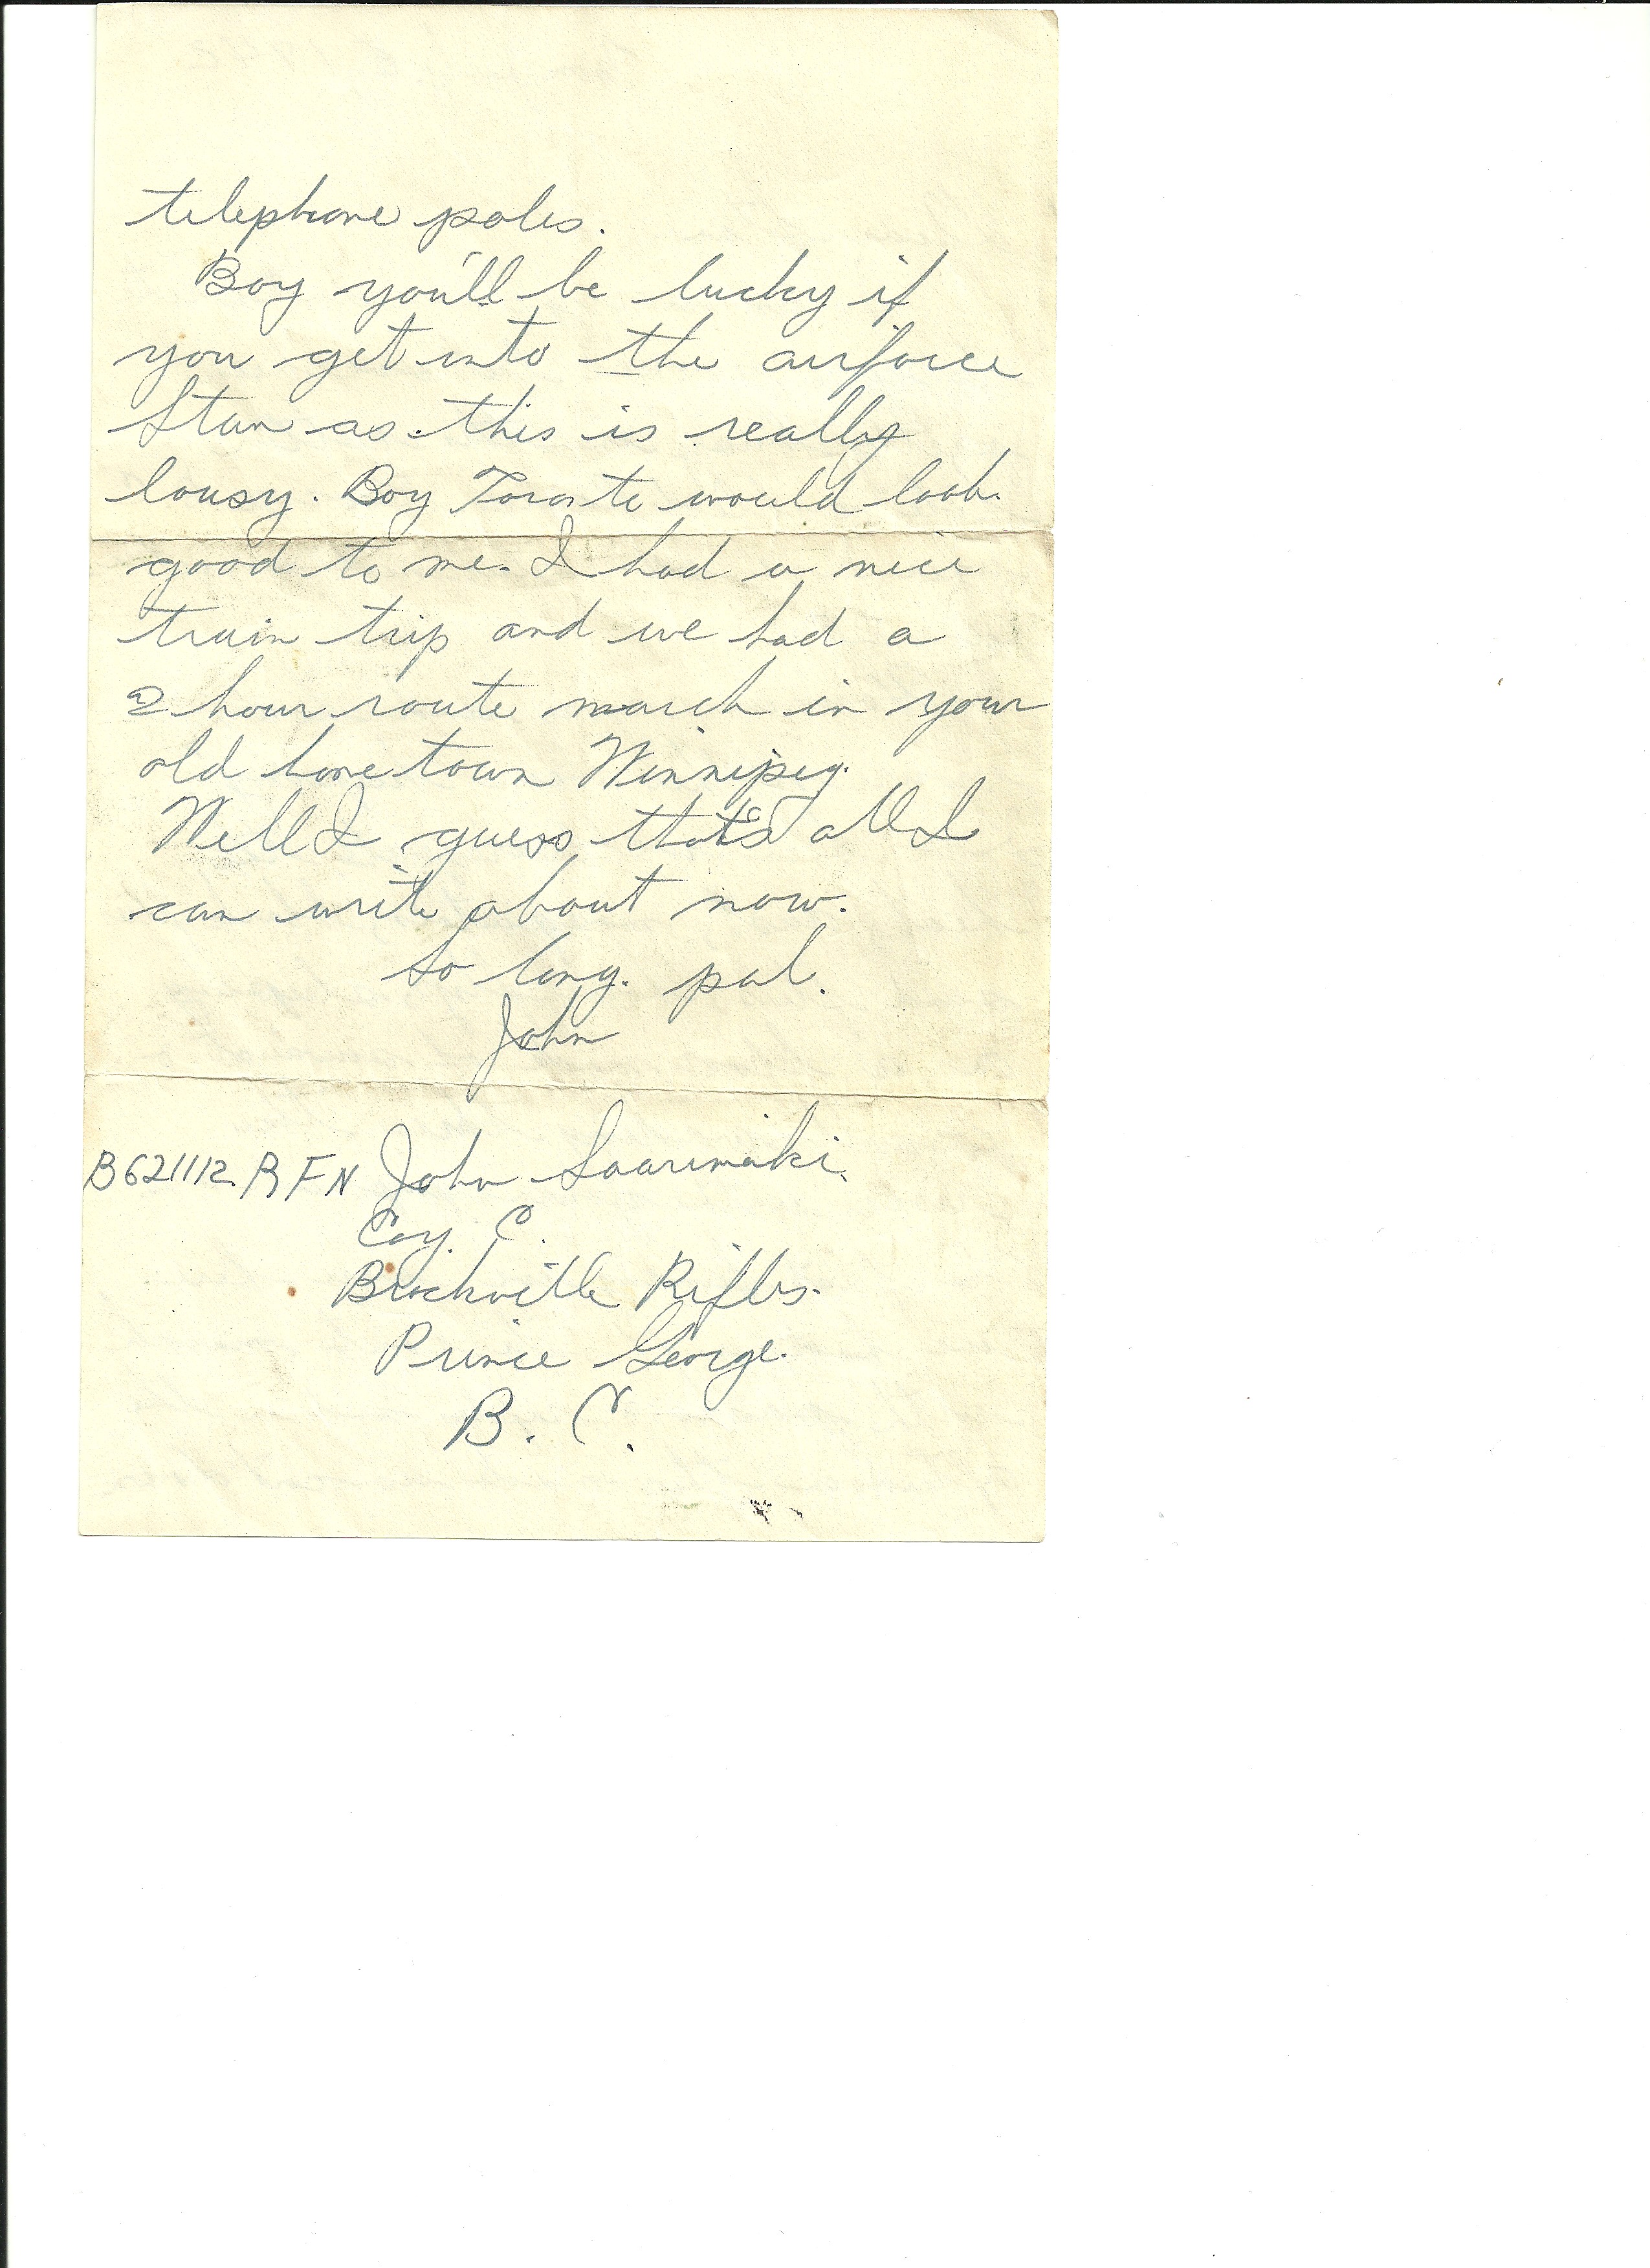 telephone poles.
Boy you'll be lucky if
you get into the airforce
Stan as this is really
lousy. Boy Toronto would look
good to me. I had a nice
train trip and we had a
2 hour route march in your
old home town Winnipeg.
Well I guess that's all I
can write about now.
So long. pal.
John
B621112. RFN John Saarimaki.
Coy. C.
Brockville Rifles.
Prince George.
B. C.